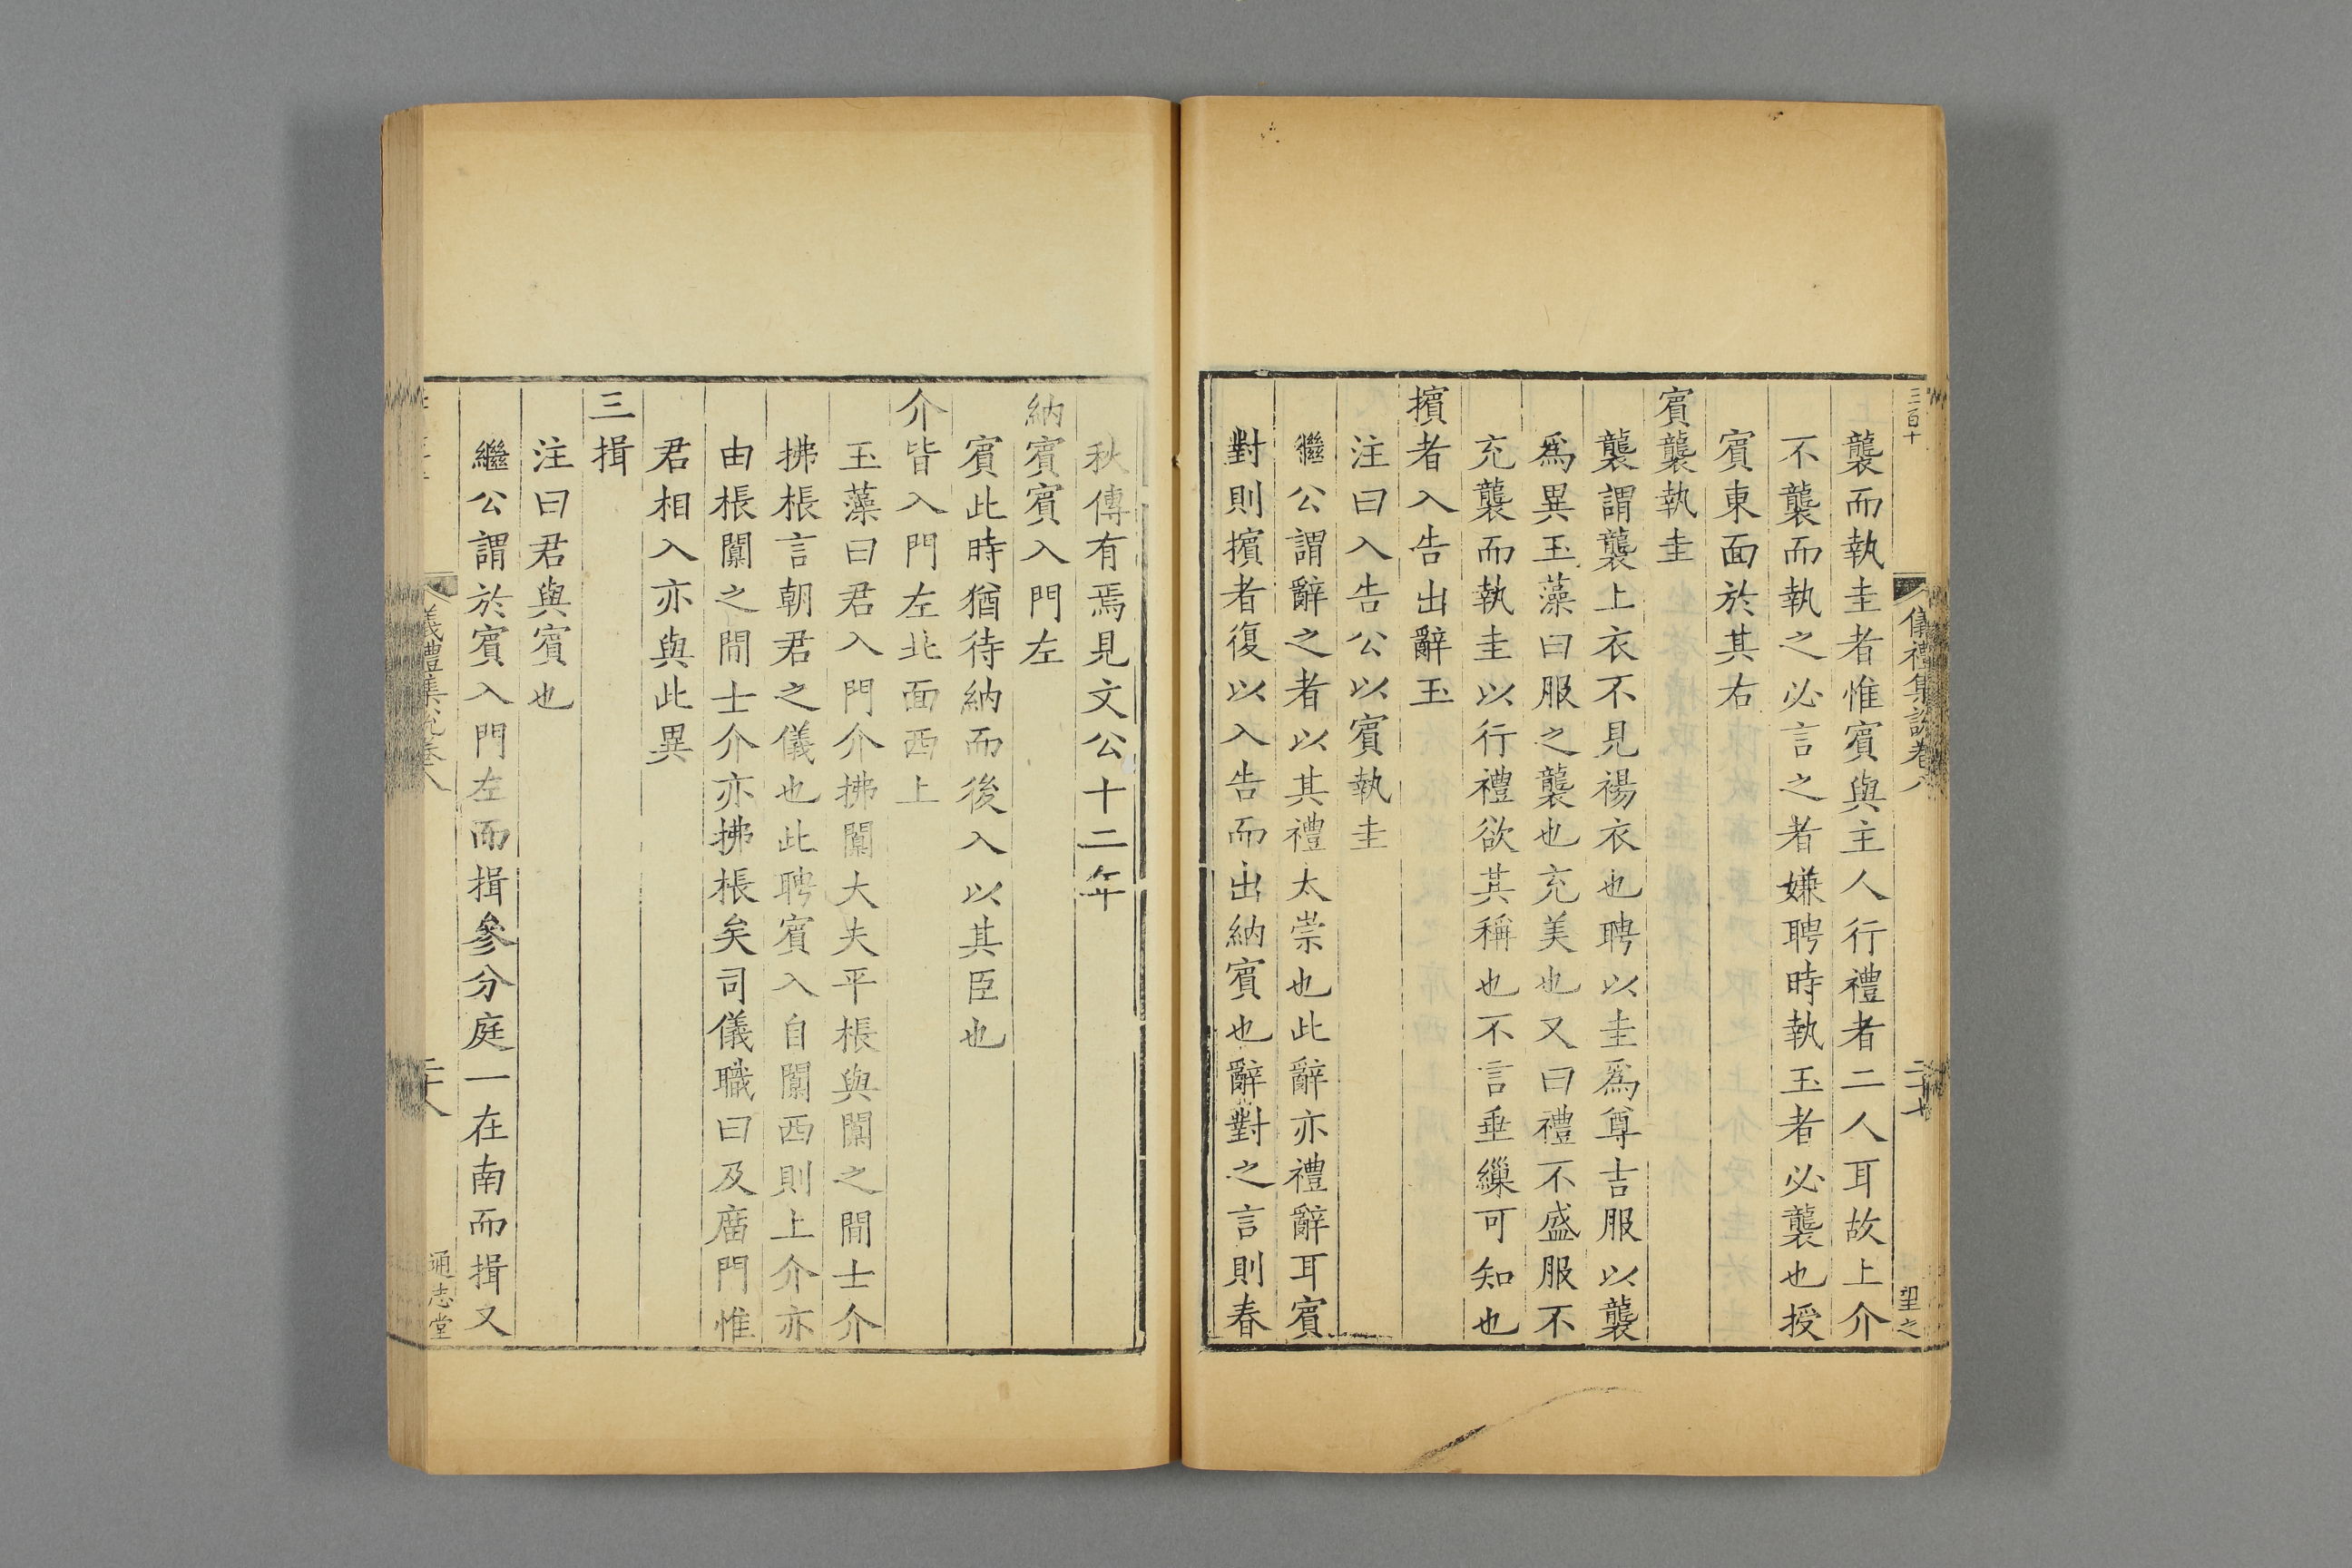 三百十
儀禮集說卷八
二十七
望之
襲而執圭者惟賓與主人行禮者二人耳故上介
不襲而執之必言之者嫌聘時執玉者必襲也授
賓東面於其右
賓襲執圭
襲謂襲上衣不見裼衣也聘以圭爲尊吉服以襲
爲異玉藻曰服之襲也充美也又曰禮不盛服不
充襲而執圭以行禮欲其稱也不言垂繅可知也
擯者入告出辭玉
注曰入告公以賓執圭
繼公謂辭之者以其禮太崇也此辭亦禮辭耳賓
對則擯者復以入告而出納賓也辭對之言則春
秋傳有焉見文公十二年
納賓賓入門左
賓此時猶待納而後入以其臣也
介皆入門左北面西上
玉藻曰君入門介拂闑大夫平棖與闑之間士介
拂棖言朝君之儀也此聘賓入自闑西則上介亦
由棖闑之間士介亦拂棖矣司儀職曰及廟門惟
君相入亦與此異
三揖
注曰君與賓也
繼公謂於賓入門左而揖參分庭一在南而揖又
儀禮集說卷八
二十八
通志堂